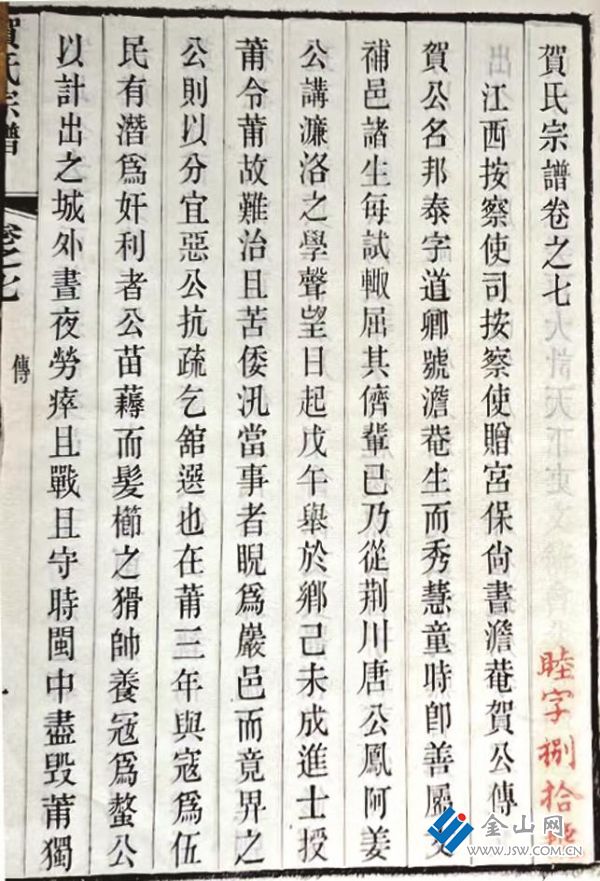 賀氏宗譜卷之七
江西按察使司按察使贈宮保尚書澹菴賀公傳
賀公名邦泰字道卿號澹菴生而秀慧童時卽善屬文
補邑諸生每試輙屈其儕輩已乃從荆川唐公鳳阿姜
公講濂洛之學聲望日起戊午舉於鄉己未成進士授
莆令莆故難治且苦倭汛當事者睨爲巖邑而竟畀之
公則以分宜惡公抗疏乞舘選也在莆三年與寇爲伍
民有潛爲奸利者公苗薅而髮櫛之猾帥養寇爲螯公
以計出之城外晝夜勞瘁且戰且守時閩中盡毁莆獨
傳
賀氏宗譜
卷之七
睦字捌拾
金山网
www.JSW.com.cn